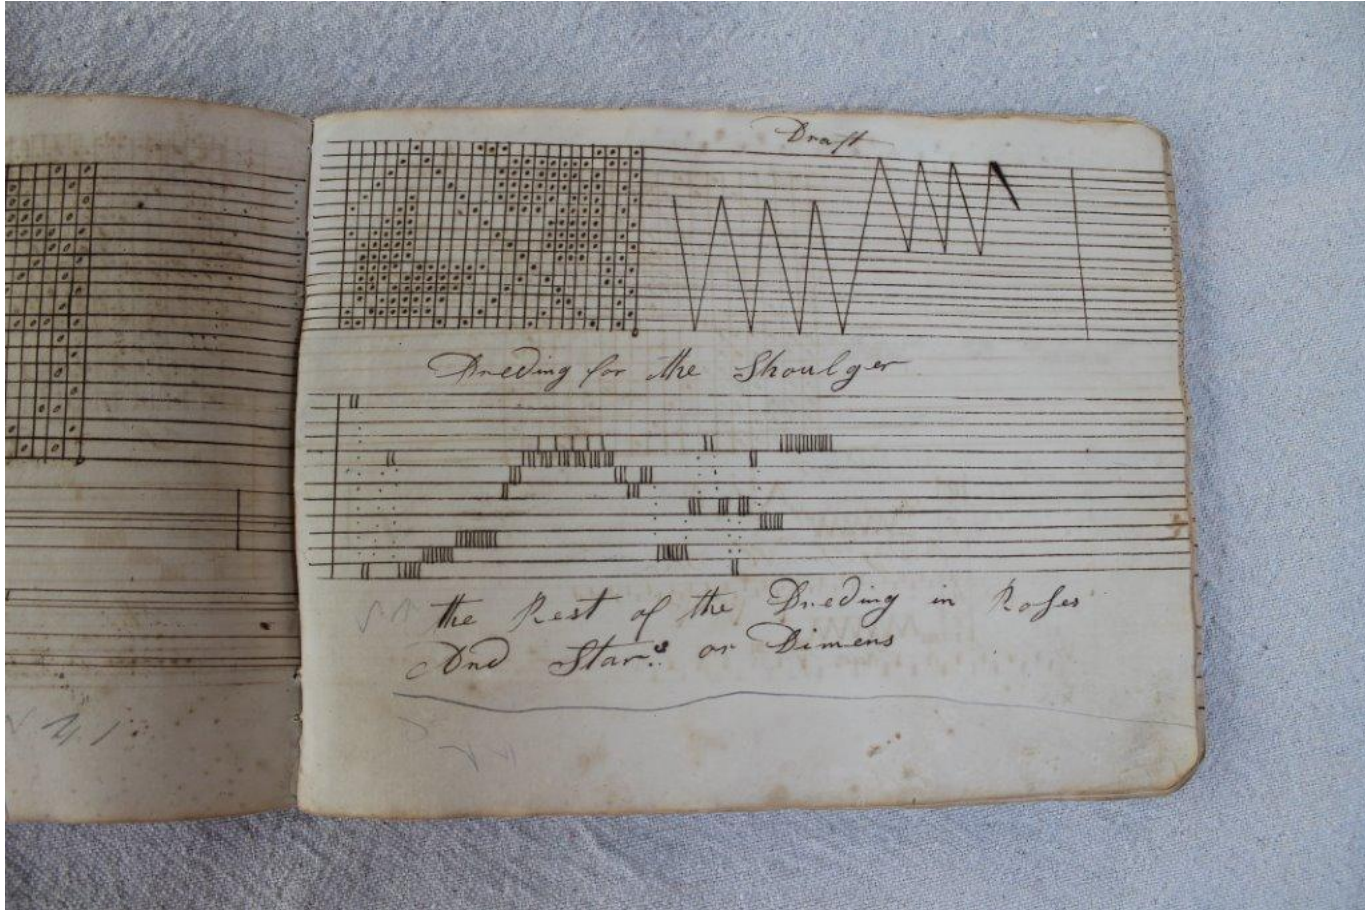 Draft
Dreding for the Shoulger
the Rest of the Dreding in Roses
And Stars or Dimens